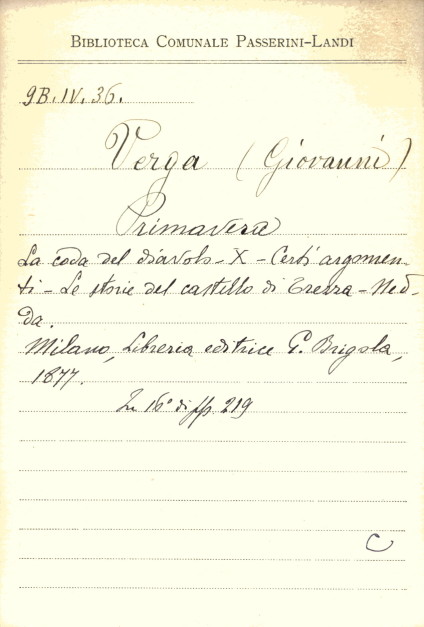 BIBLIOTECA COMUNALE PASSERINI-LANDI
9B.IV.36.
Verga (Giovanni)
Primavera
La coda del diavolo - X - Certi argomen-
ti - Le storie del castello di Trezza - Ned-
da.
Milano, Libreria editrice G. Brigola,
1877.
In 16° di pp. 219
C